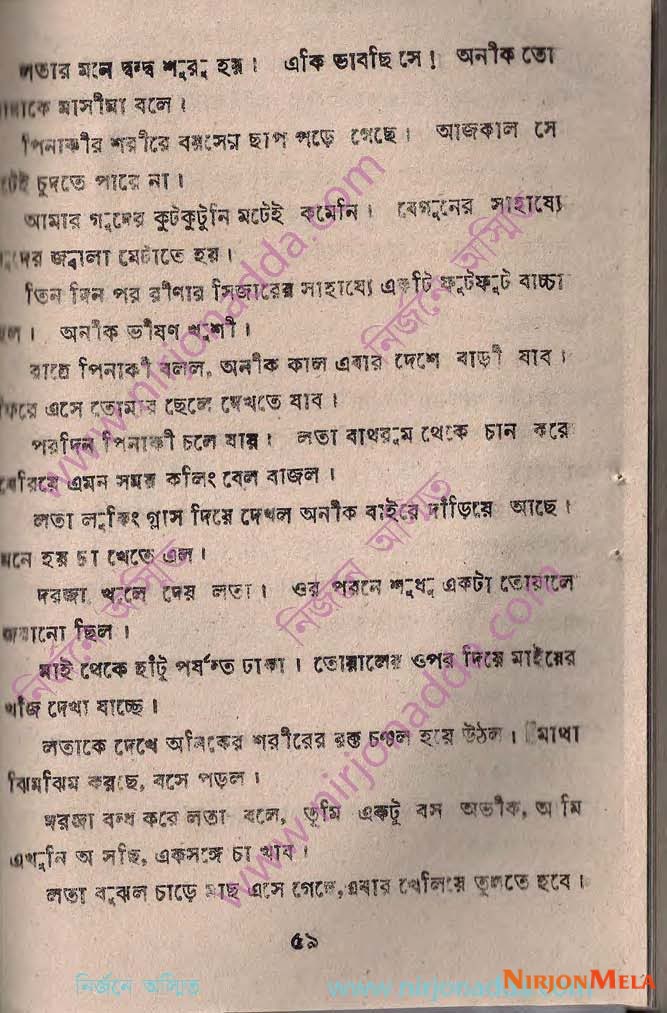 লতার মনে দ্বন্দ্ব শুরু হয়। একি ভাবছি সে! অনীক তো
আমাকে মাসীমা বলে।
পিনাকীর শরীরে বয়সের ছাপ পড়ে গেছে। আজকাল সে
মটেই চুদতে পারে না।
আমার গুদের কুটকুটুনি মটেই কমেনি। বেগুনের সাহায্যে
গুদের জ্বালা মেটাতে হয়।
তিন দিন পর রীণার সিজারের সাহায্যে একটি ফুটফুট বাচ্চা
হল। অনীক ভীষণ খুশী।
রাত্রে পিনাকী বলল, অনীক কাল এবার দেশে বাড়ী যাব।
ফিরে এসে তোমার ছেলে দেখতে যাব।
পরদিন পিনাকী চলে যায়। লতা বাথরুম থেকে চান করে
বেরিয়ে এমন সময় কলিং বেল বাজল।
লতা লুকিং গ্লাস দিয়ে দেখল অনীক বাইরে দাঁড়িয়ে আছে।
মনে হয় চা খেতে এল।
দরজা খুলে দেয় লতা। ওর পরনে শুধু একটা তোয়ালে
জড়ানো ছিল।
মাই থেকে হাঁটু পর্যন্ত ঢাকা। তোয়ালের ওপর দিয়ে মাইয়ের
খাঁজ দেখা যাচ্ছে।
লতাকে দেখে অনিকের শরীরের রক্ত চঞ্চল হয়ে উঠল। মাথা
ঝিমঝিম করছে, বসে পড়ল।
দরজা বন্ধ করে লতা বলে, তুমি একটু বস অভীক, আমি
এখুনি আসছি, একসঙ্গে চা খাব।
লতা বুঝল চাড়ে মাছ এসে গেছে, এবার খেলিয়ে তুলতে হবে।
৫৯
নির্জনে অস্মিত www.nirjonadda.com NIRJONMELA
www.nirjonadda.com
নির্জনে অস্মিত
www.nirjonadda.com
নির্জনে অস্মিত
নির্জনে অস্মিত